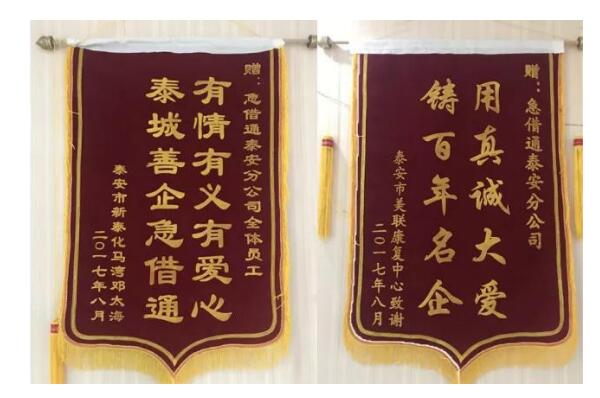 赠：急借通泰安分公司全体员工
有情有义有爱心
泰城善企急借通
泰安市新泰化马湾邓太海
二〇一七年八月
赠：急借通泰安分公司
用真诚大爱
铸百年名企
泰安市美联康复中心致谢
二〇一七年八月